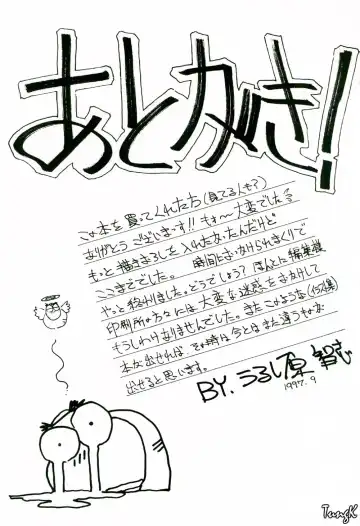 あとがき!
この本を買ってくれた方(見てる人も?)
ありがとうございまーす!! もぉ〜大変でした
もっと描きおろしを入れたかったんだけど
ここまででした。 時間においかけられまくりで
やっと終わりました。どうでしょう? ほんとに編集様
印刷所の方々には大変な迷惑をおかけして
もうしわけありませんでした。またこのような(イラスト集)
本が出せれば、その時は今とはまた違うものが
出せると思います。
BY. うるし原智志
1997. 9
TungK